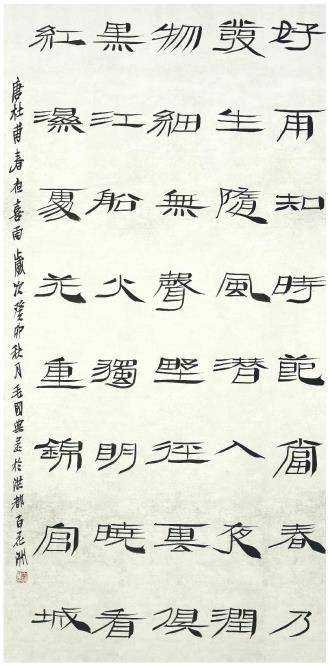 好雨知時節當春乃
發生隨風潜入夜潤
物細無聲野徑雲俱
黑江船火獨明曉看
紅濕處花重錦官城
唐杜甫春夜喜雨歲次癸卯秋月毛國典書於洪都百花洲